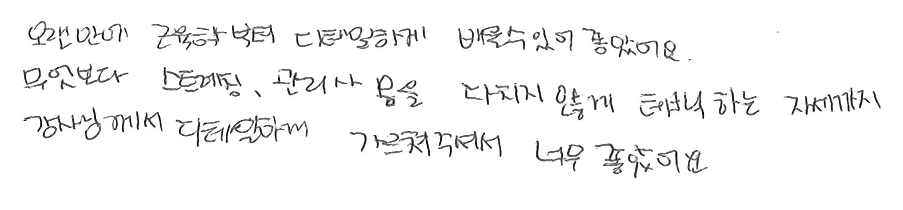 오랜만에 근육학부터 디테일하게 배울수있어 좋았어요.
무엇보다 스트레칭、관리사 몸을 다치지 않게 테크닉 하는 자세까지
강사님께서 디테일하게 가르쳐주셔서 너무 좋았어요